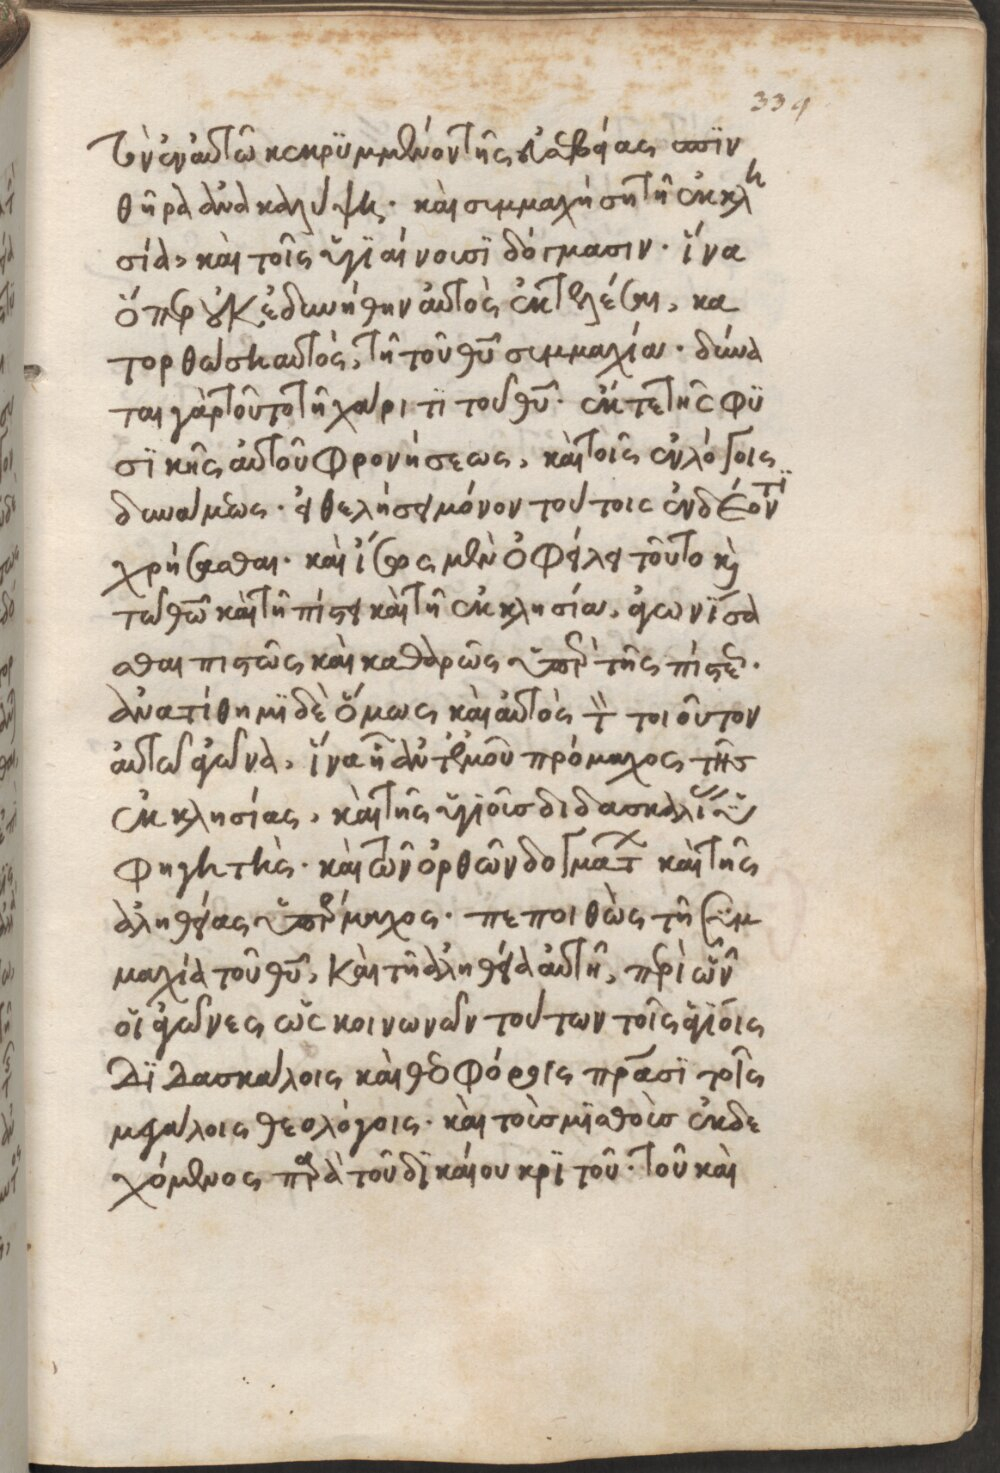 339
τὸν ἐν αὐτῶ κεκρϋμμένον τῆς εὐσεβείας σπϊν
θῆρα ἀνακαλύψῃς· καὶ συμμαχήση τῆ ἐκκλη
σία, καὶ τοῖς ὑγϊαίνουσϊ δόγμασιν· ἵνα
ὅπερ οὐκ ἐδυνήθην αὐτὸς ἐκτελέσαι, κα
τορθώση αὐτὸς, τῆ τοῦ θῦ συμμαχία· δύνα
ται γὰρ τοῦτο τῆ χάριτϊ τοῦ θῦ· ἔκ τε τῆς φϋ
σϊκῆς αὐτοῦ φρονήσεως, καὶ τοῖς ἐν λόγοις
δυνάμεως· εἰ θελήσει μόνον τούτοις ἐνδέοντϊ
χρήσασθαι· καὶ ἴσως μὲν ὀφείλει τοῦτο κὶ
τῶ θῶ καὶ τῆ πίστει καὶ τῆ ἐκκλησία, ἀγωνΐσα
σθαι πιστῶς καὶ καθαρῶς ὑπὲρ τῆς πίστεως·
ἀνατίθημϊ δὲ ὅμως καὶ αὐτὸς τὸν τοιοῦτον
αὐτῶ ἀγῶνα, ἵνα ἦ ἀντ' ἐμοῦ πρόμαχος τῆς
ἐκκλησίας, καὶ τῆς ὑγϊοῦς διδασκαλίας ὑ
φηγητὴς· καὶ τῶν ὀρθῶν δογμάτων καὶ τῆς
ἀληθείας ὑπέρμαχος· πεποιθὼς τῆ συμ
μαχία τοῦ θῦ, καὶ τῆ ἀληθεία αὐτῆ, περὶ ὧν
οἵ ἀγῶνες ὡς κοινωνῶν τούτων τοῖς ἁγίοις
Δϊδασκάλοις καὶ θεοφόροις πρᾶσϊ τοῖς
μεγάλοις θεολόγοις· καὶ τοὺς μϊσθοὺς ἐκδε
χόμενος παρὰ τοῦ δϊκαίου κρϊτοῦ· τοῦ καὶ